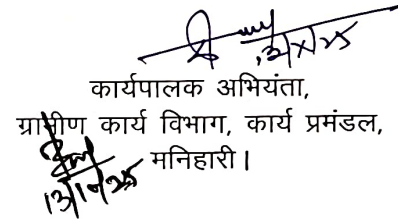 कार्यपालक अभियंता,
ग्रामीण कार्य विभाग, कार्य प्रमंडल,
मनिहारी।
13/10/25